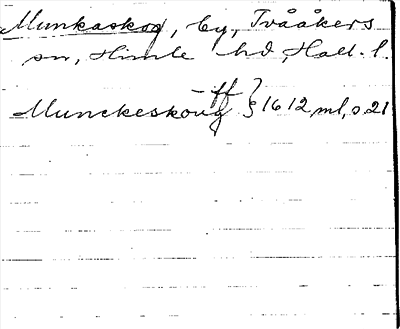 Munkaskog, by, Tvååkers
sn, Himle hd, Hall. l.
–ff
Munckeskoug } 1612 ml, s. 21